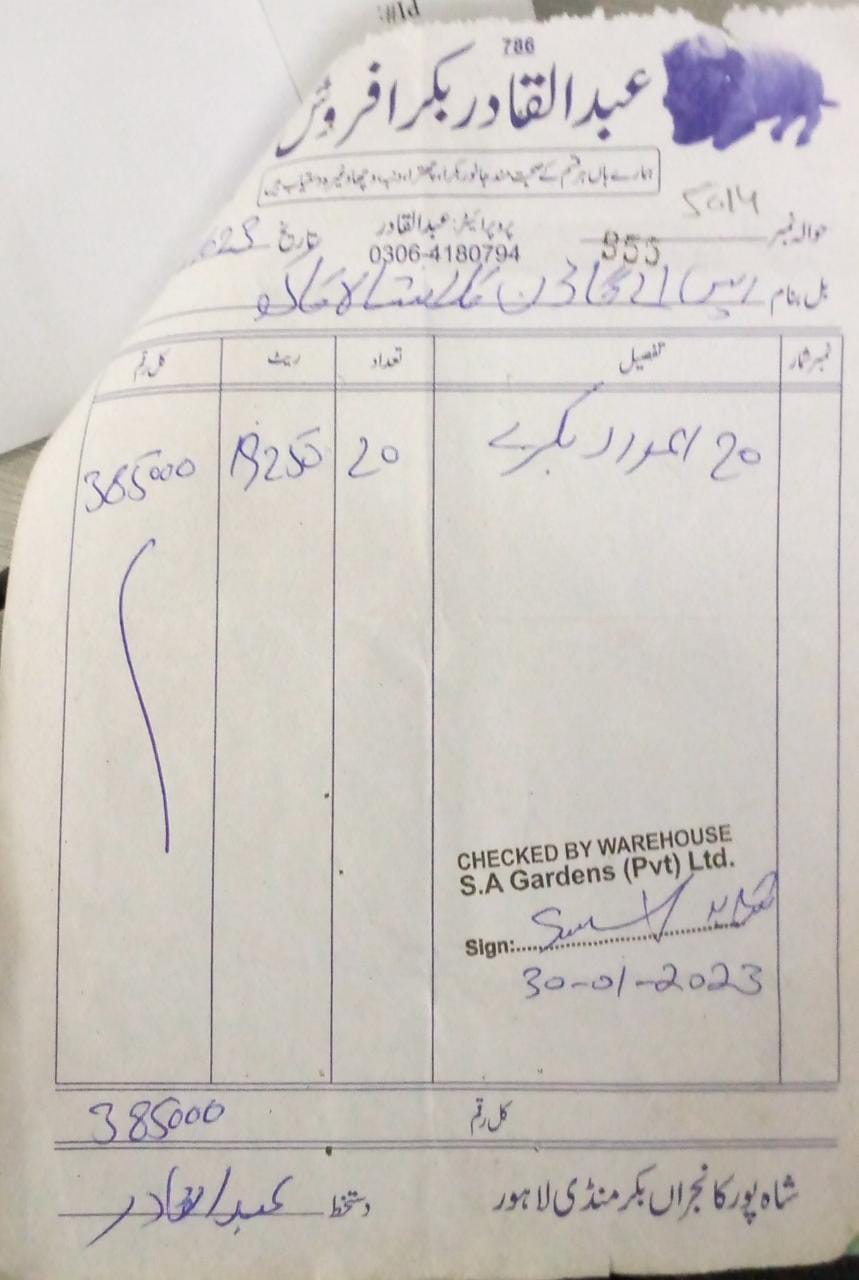 786
عبدالقادر بکرا فروش
ہمارے ہاں ہر قسم کے صحت مند جانور بکرا، چھترا، دنبہ، وچھا وغیرہ دستیاب ہیں
5014
حوالہ نمبر 955 پروپرائیٹر: عبدالقادر تاریخ
0306-4180794
بل بنام ایس اے گارڈن
نمبر شمار تفصیل تعداد ریٹ کل رقم
20 عدد بکرے 20 19250 385000
CHECKED BY WAREHOUSE
S.A Gardens (Pvt) Ltd.
Sign:
30-01-2023
کل رقم 385000
شاہ پور کانجراں بکر منڈی لاہور دستخط عبدالقادر